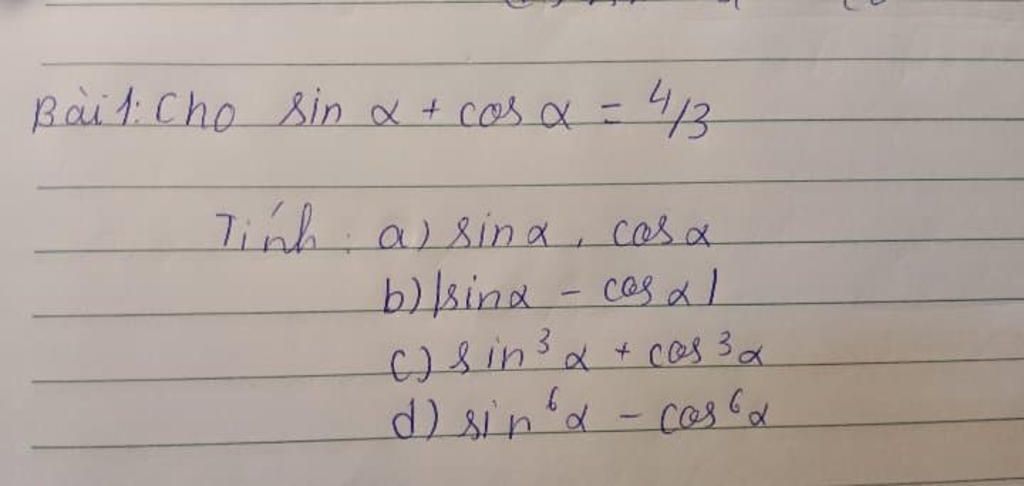 Bài 1: Cho sin α + cos α = 4/3
Tính: a) sinα . cosα
b) |sinα - cosα|
c) sin³α + cos³α
d) sin⁶α - cos⁶α